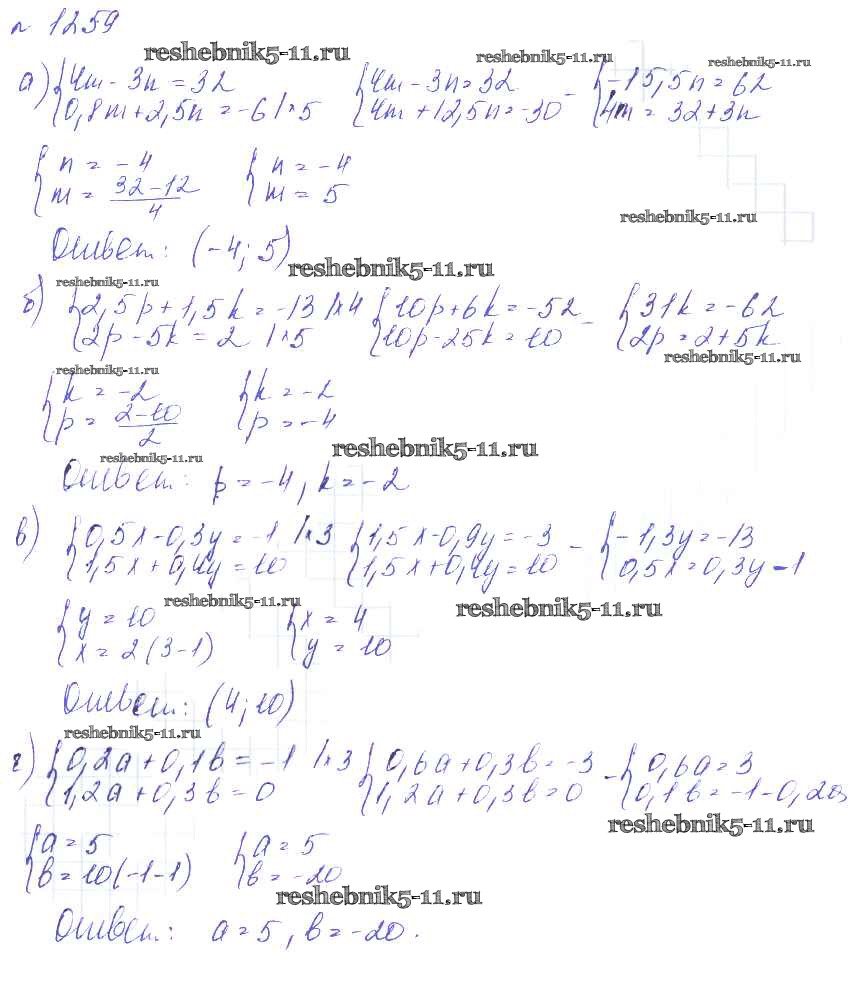 № 1259
reshebnik5-11.ru reshebnik5-11.ru reshebnik5-11.ru
а) { 4m - 3n = 32 { 4m - 3n = 32 - { -15,5n = 62
{ 0,8m + 2,5n = -6 | * 5 { 4m + 12,5n = -30 { 4m = 32 + 3n
{ n = -4 { n = -4
{ m = (32 - 12)/4 { m = 5
reshebnik5-11.ru
Ответ: (-4; 5)
reshebnik5-11.ru
reshebnik5-11.ru
б) { 2,5p + 1,5k = -13 | * 4 { 10p + 6k = -52 - { 31k = -62
{ 2p - 5k = 2 | * 5 { 10p - 25k = 10 { 2p = 2 + 5k
reshebnik5-11.ru
reshebnik5-11.ru
{ k = -2 { k = -2
{ p = (2 - 10)/2 { p = -4
reshebnik5-11.ru
reshebnik5-11.ru
Ответ: p = -4, k = -2
в) { 0,5x - 0,3y = -1 | * 3 { 1,5x - 0,9y = -3 - { -1,3y = -13
{ 1,5x + 0,4y = 10 { 1,5x + 0,4y = 10 { 0,5x = 0,3y - 1
reshebnik5-11.ru reshebnik5-11.ru
{ y = 10 { x = 4
{ x = 2(3 - 1) { y = 10
Ответ: (4; 10)
reshebnik5-11.ru
г) { 0,2a + 0,1b = -1 | * 3 { 0,6a + 0,3b = -3 - { 0,6a = 3
{ 1,2a + 0,3b = 0 { 1,2a + 0,3b = 0 { 0,1b = -1 - 0,2a
reshebnik5-11.ru
{ a = 5 { a = 5
{ b = 10(-1 - 1) { b = -20
reshebnik5-11.ru
Ответ: a = 5, b = -20.